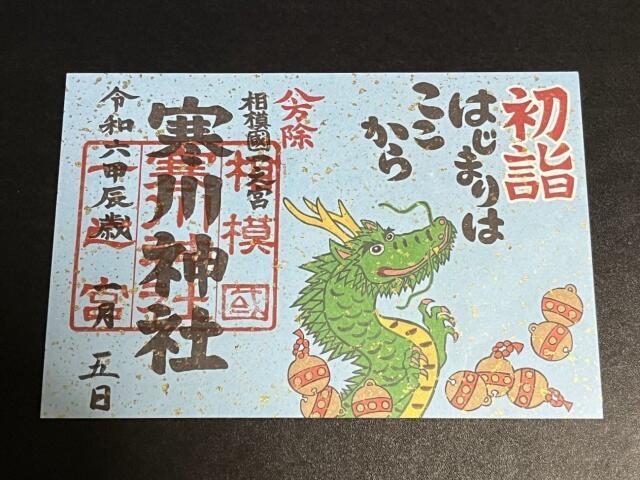 初詣
はじまりは
ここから
八方除
相模國一之宮
寒川神社
令和六甲辰歳 一月 五日
相模國
一之宮